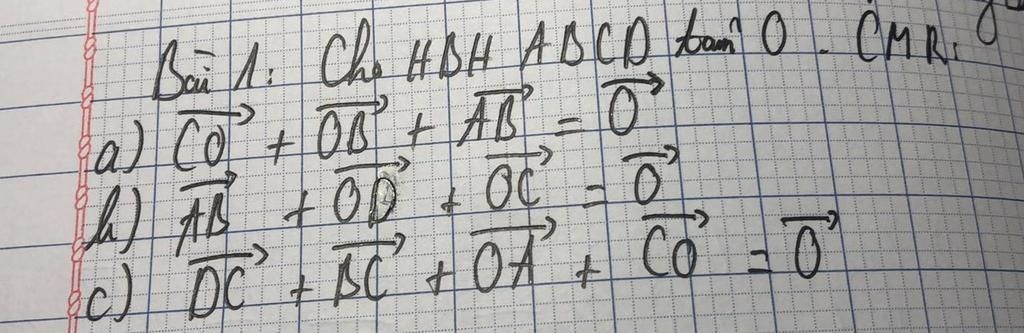 Bài 1: Cho HBH ABCD tâm O. CMR:
a) $\overrightarrow{CO} + \overrightarrow{OB} + \overrightarrow{AB} = \overrightarrow{O}$
b) $\overrightarrow{AB} + \overrightarrow{OD} + \overrightarrow{OC} = \overrightarrow{O}$
c) $\overrightarrow{DC} + \overrightarrow{BC} + \overrightarrow{OA} + \overrightarrow{CO} = \overrightarrow{O}$